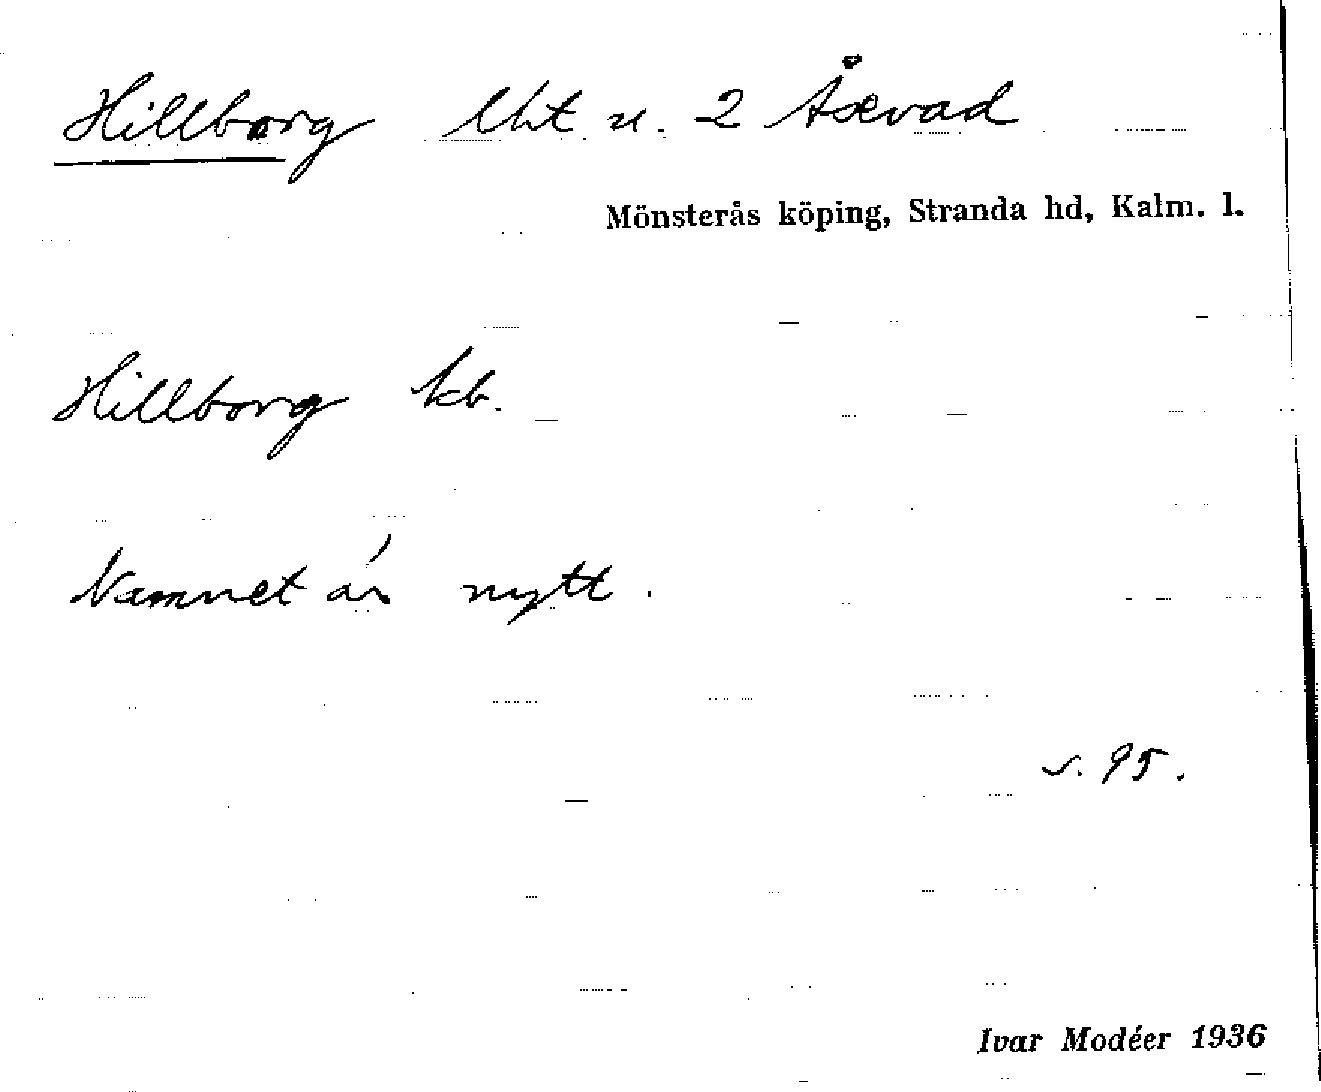 Hillborg lht u. 2 Åsevad
Mönsterås köping, Stranda hd, Kalm. l.
Hillborg kb.
Namnet är nytt.
s. 95.
Ivar Modéer 1936